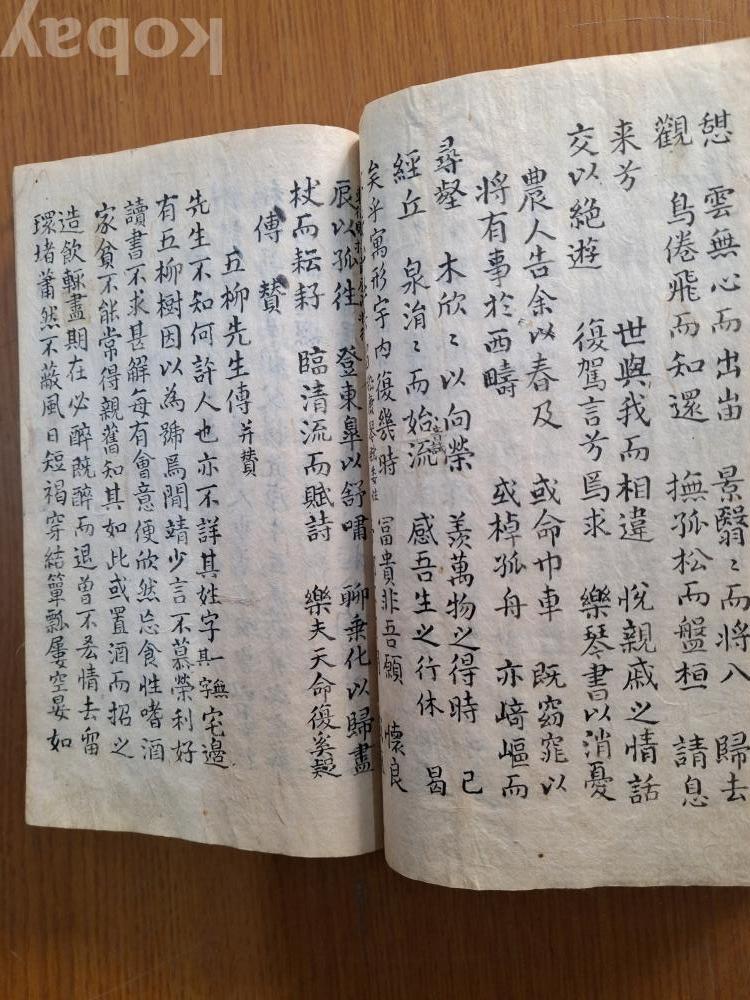 憇 雲無心而出岫 景翳〻而將入 歸去
觀 鳥倦飛而知還 撫孤松而盤桓 請息
来兮 世與我而相違 悅親戚之情話
交以絶遊 復駕言兮焉求 樂琴書以消憂
農人告余以春及 或命巾車 既窈窕以
將有事於西疇 或棹孤舟 亦崎嶇而
尋壑 木欣〻以向榮 羨萬物之得時 已
經丘 泉涓〻而始流 感吾生之行休 曷
矣乎寓形宇内復幾時 富貴非吾願 懷良
辰以孤往 登東皐以舒嘯 聊乘化以歸盡
杖而耘耔 臨清流而賦詩 樂夫天命復奚疑
傳賛
五柳先生傳并賛
先生不知何許人也亦不詳其姓字其一無字宅邊
有五柳樹因以為號焉閒靖少言不慕榮利好
讀書不求甚解每有會意便欣然忘食性嗜酒
家貧不能常得親舊知其如此或置酒而招之
造飲輒盡期在必醉既醉而退曾不吝情去留
環堵蕭然不蔽風日短褐穿結簞瓢屢空晏如
kobay